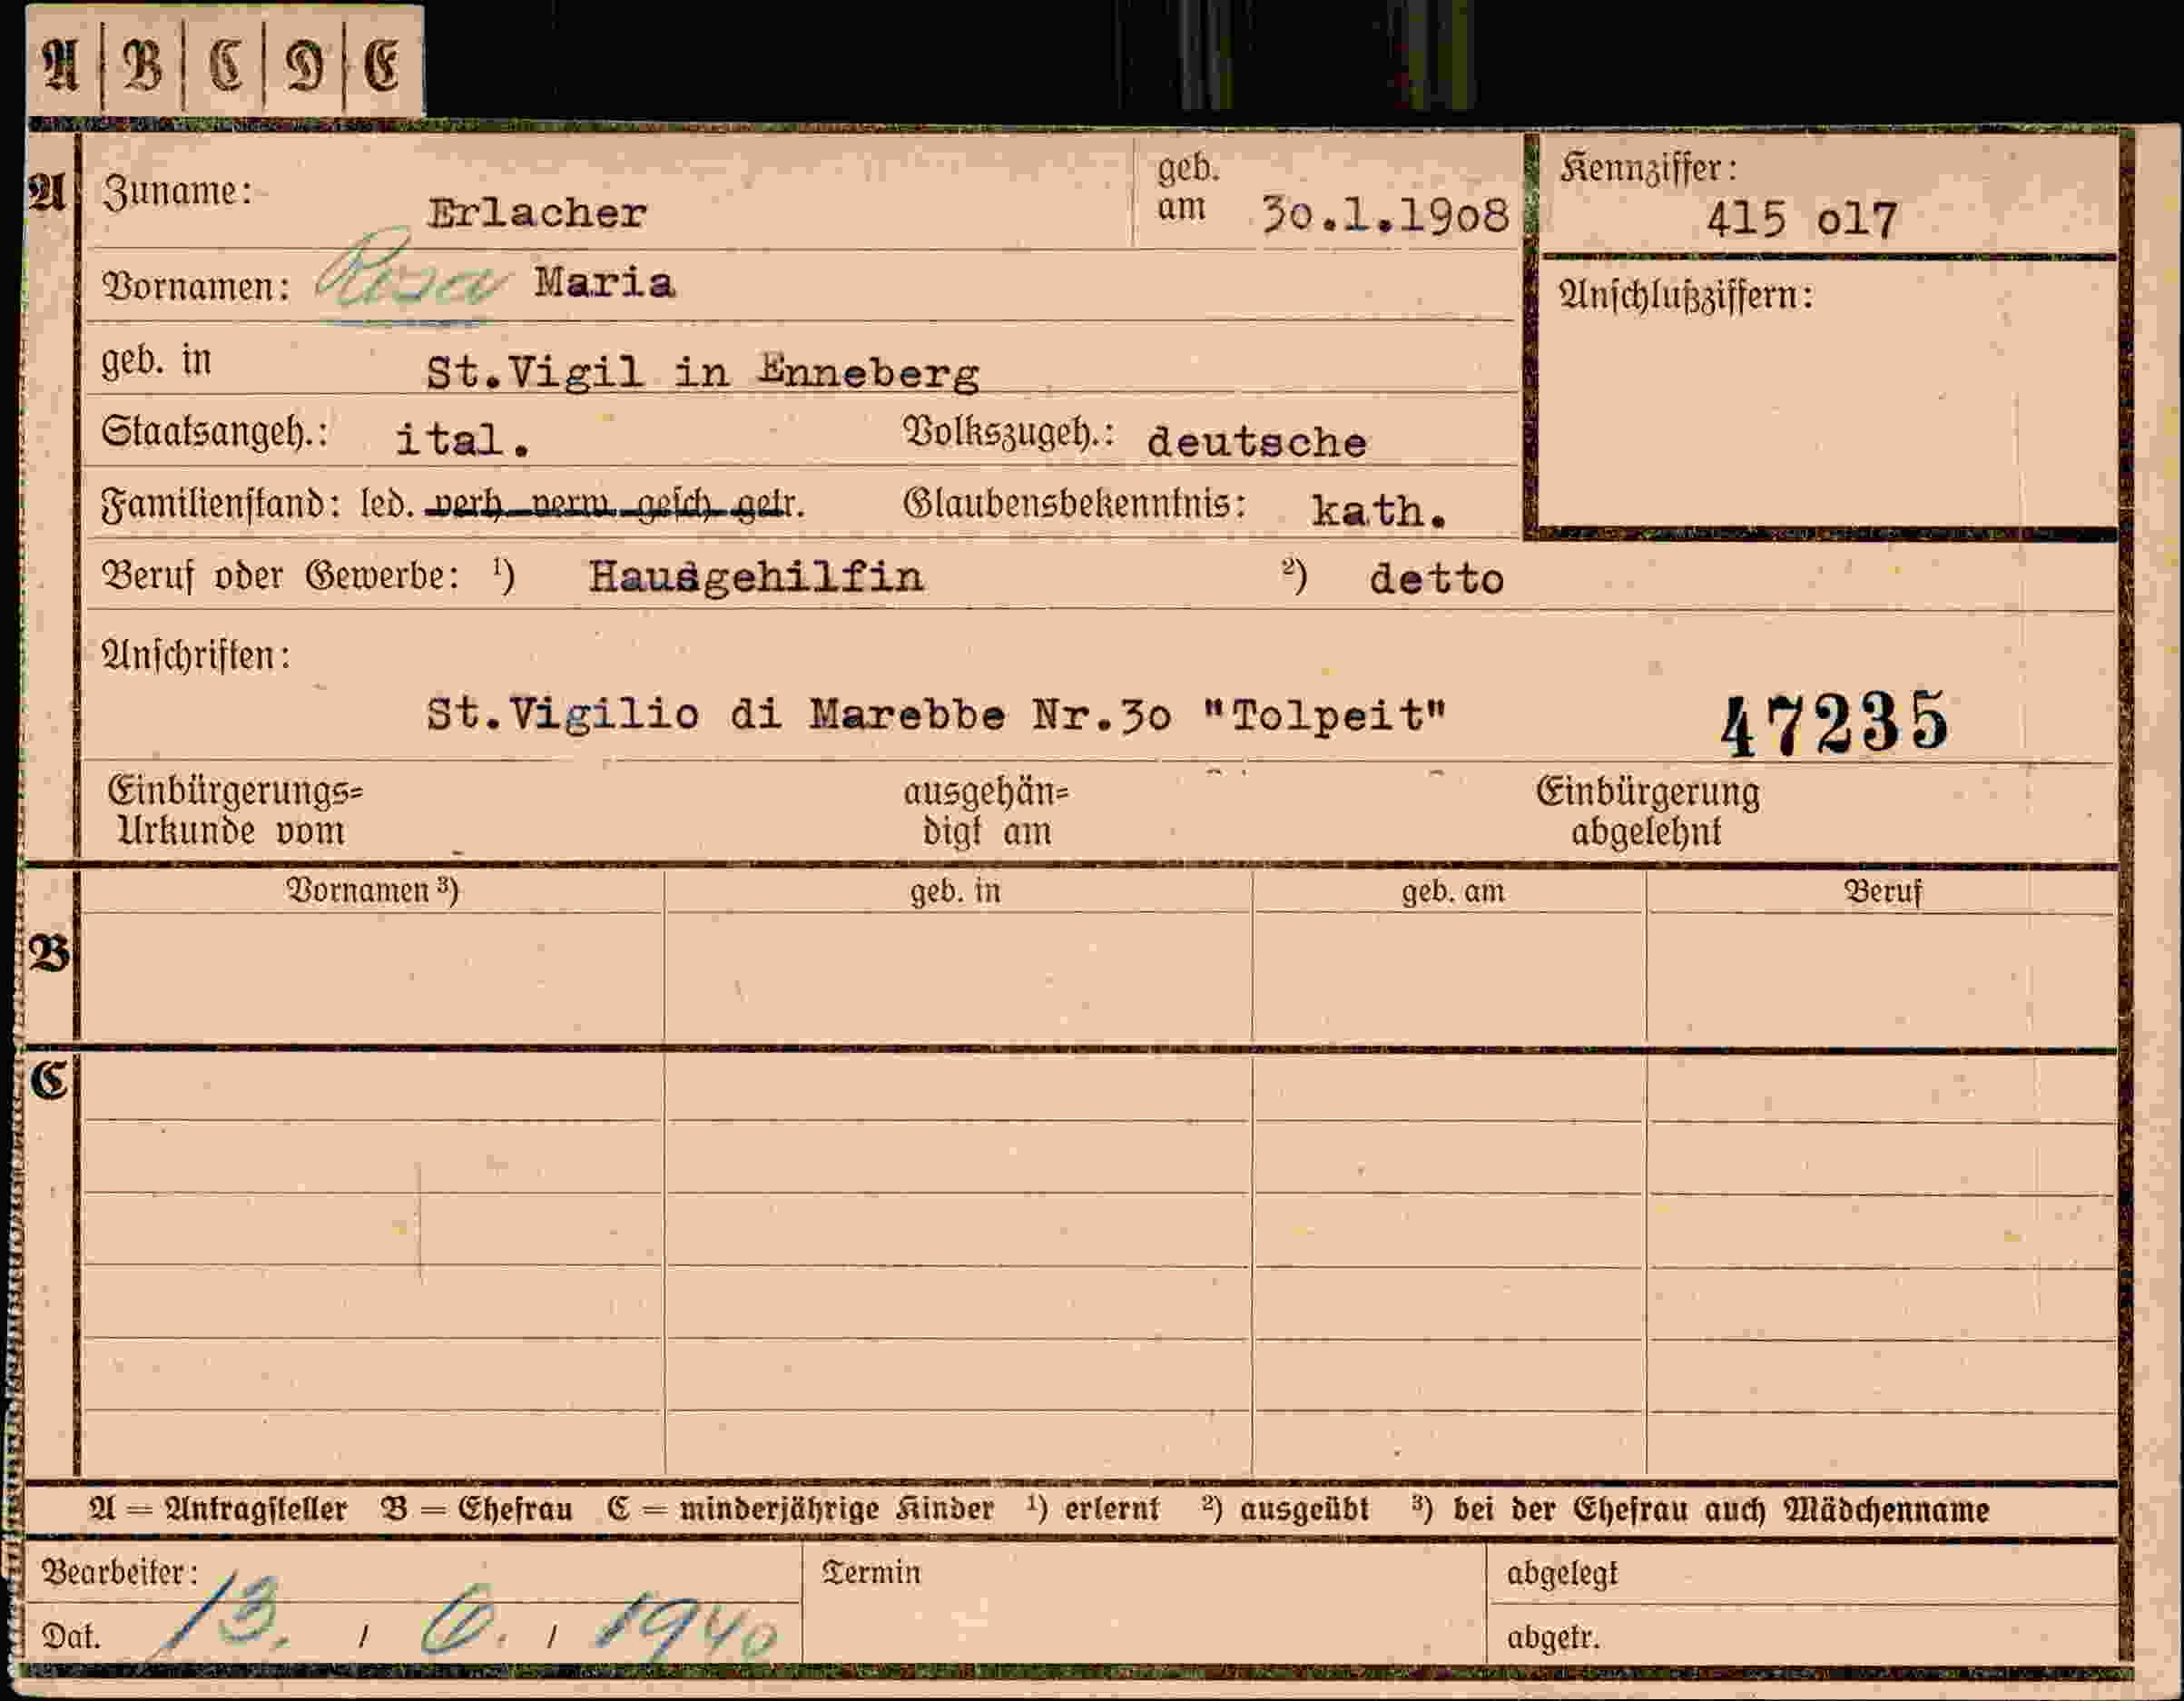 A | B | C | D | E
A Zuname: Erlacher geb. am 30.1.1908 Kennziffer: 415 o17
Vornamen: Rosa Maria Anschlußziffern:
geb. in St.Vigil in Enneberg
Staatsangeh.: ital. Volkszugeh.: deutsche
Familienstand: led. verh. verw. gesch. getr. Glaubensbekenntnis: kath.
Beruf oder Gewerbe: ¹) Hausgehilfin ²) detto
Anschriften:
St.Vigilio di Marebbe Nr.30 "Tolpeit" 47235
Einbürgerungs= ausgehän= Einbürgerung
Urkunde vom digt am abgelehnt
Vornamen ³) geb. in geb. am Beruf
B
C
A = Antragsteller B = Ehefrau C = minderjährige Kinder ¹) erlernt ²) ausgeübt ³) bei der Ehefrau auch Mädchenname
Bearbeiter: Termin abgelegt
Dat. 13. / 6. / 1940 abgetr.